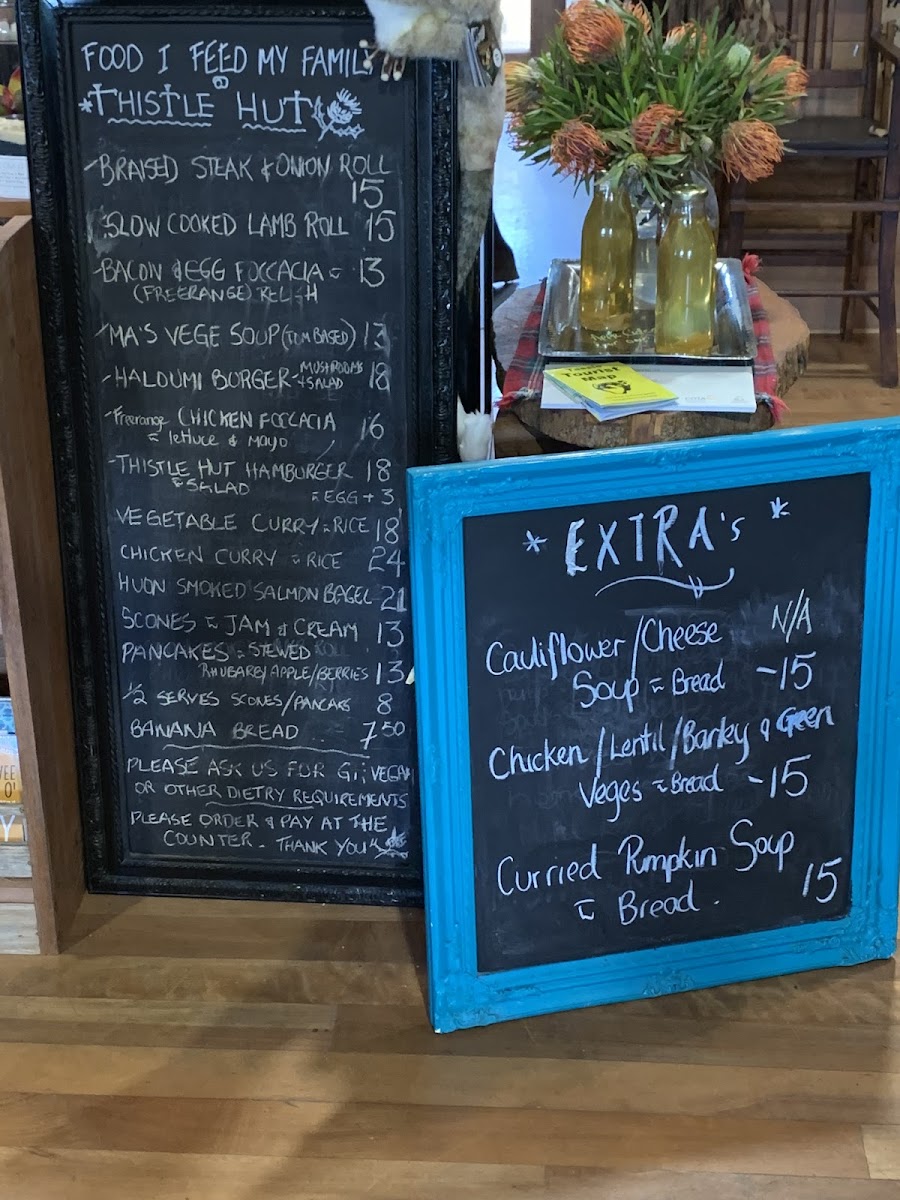 FOOD I FEED MY FAMILY
*THISTLE HUT
-BRAISED STEAK & ONION ROLL
15
SLOW COOKED LAMB ROLL 15
-BACON & EGG FOCCACIA 13
(FREERANGE) RELISH
-MA'S VEGE SOUP (TOM BASED) 13
-HALOUMI BURGER-MUSHROOMS 18
+SALAD
-Freerange CHICKEN FOCCACIA 16
lettuce & MAYO
-THISTLE HUT HAMBURGER 18
& SALAD EGG + 3
VEGETABLE CURRY RICE 18
CHICKEN CURRY RICE 24
HUON SMOKED SALMON BAGEL 21
SCONES JAM & CREAM 13
PANCAKES STEWED
RHUBARB/APPLE/BERRIES 13
1/2 SERVES SCONES/PANCAKS 8
BANANA BREAD 7.50
PLEASE ASK US FOR GF, VEGAN
OR OTHER DIETRY REQUIREMENTS
PLEASE ORDER & PAY AT THE
COUNTER. THANK YOU
Tourist
Map
* EXTRA's *
Cauliflower/Cheese N/A
Soup Bread -15
Chicken/Lentil/Barley & Green
Veges Bread -15
Curried Pumpkin Soup
Bread. 15